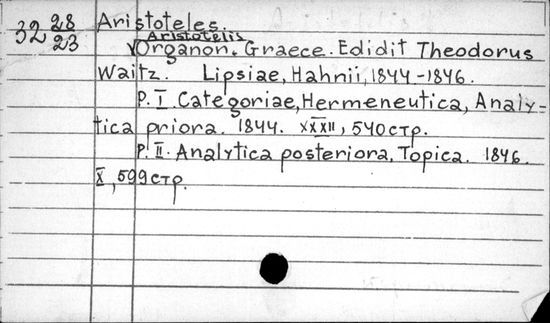 32 28/23 Aristoteles.
Aristotelis
Organon. Graece. Edidit Theodorus
Waitz. Lipsiae, Hahnii, 1844-1846.
P. I. Categoriae, Hermeneutica, Analy-
tica priora. 1844. XXXII, 540 стр.
P. II. Analytica posteriora, Topica. 1846.
X, 599 стр.